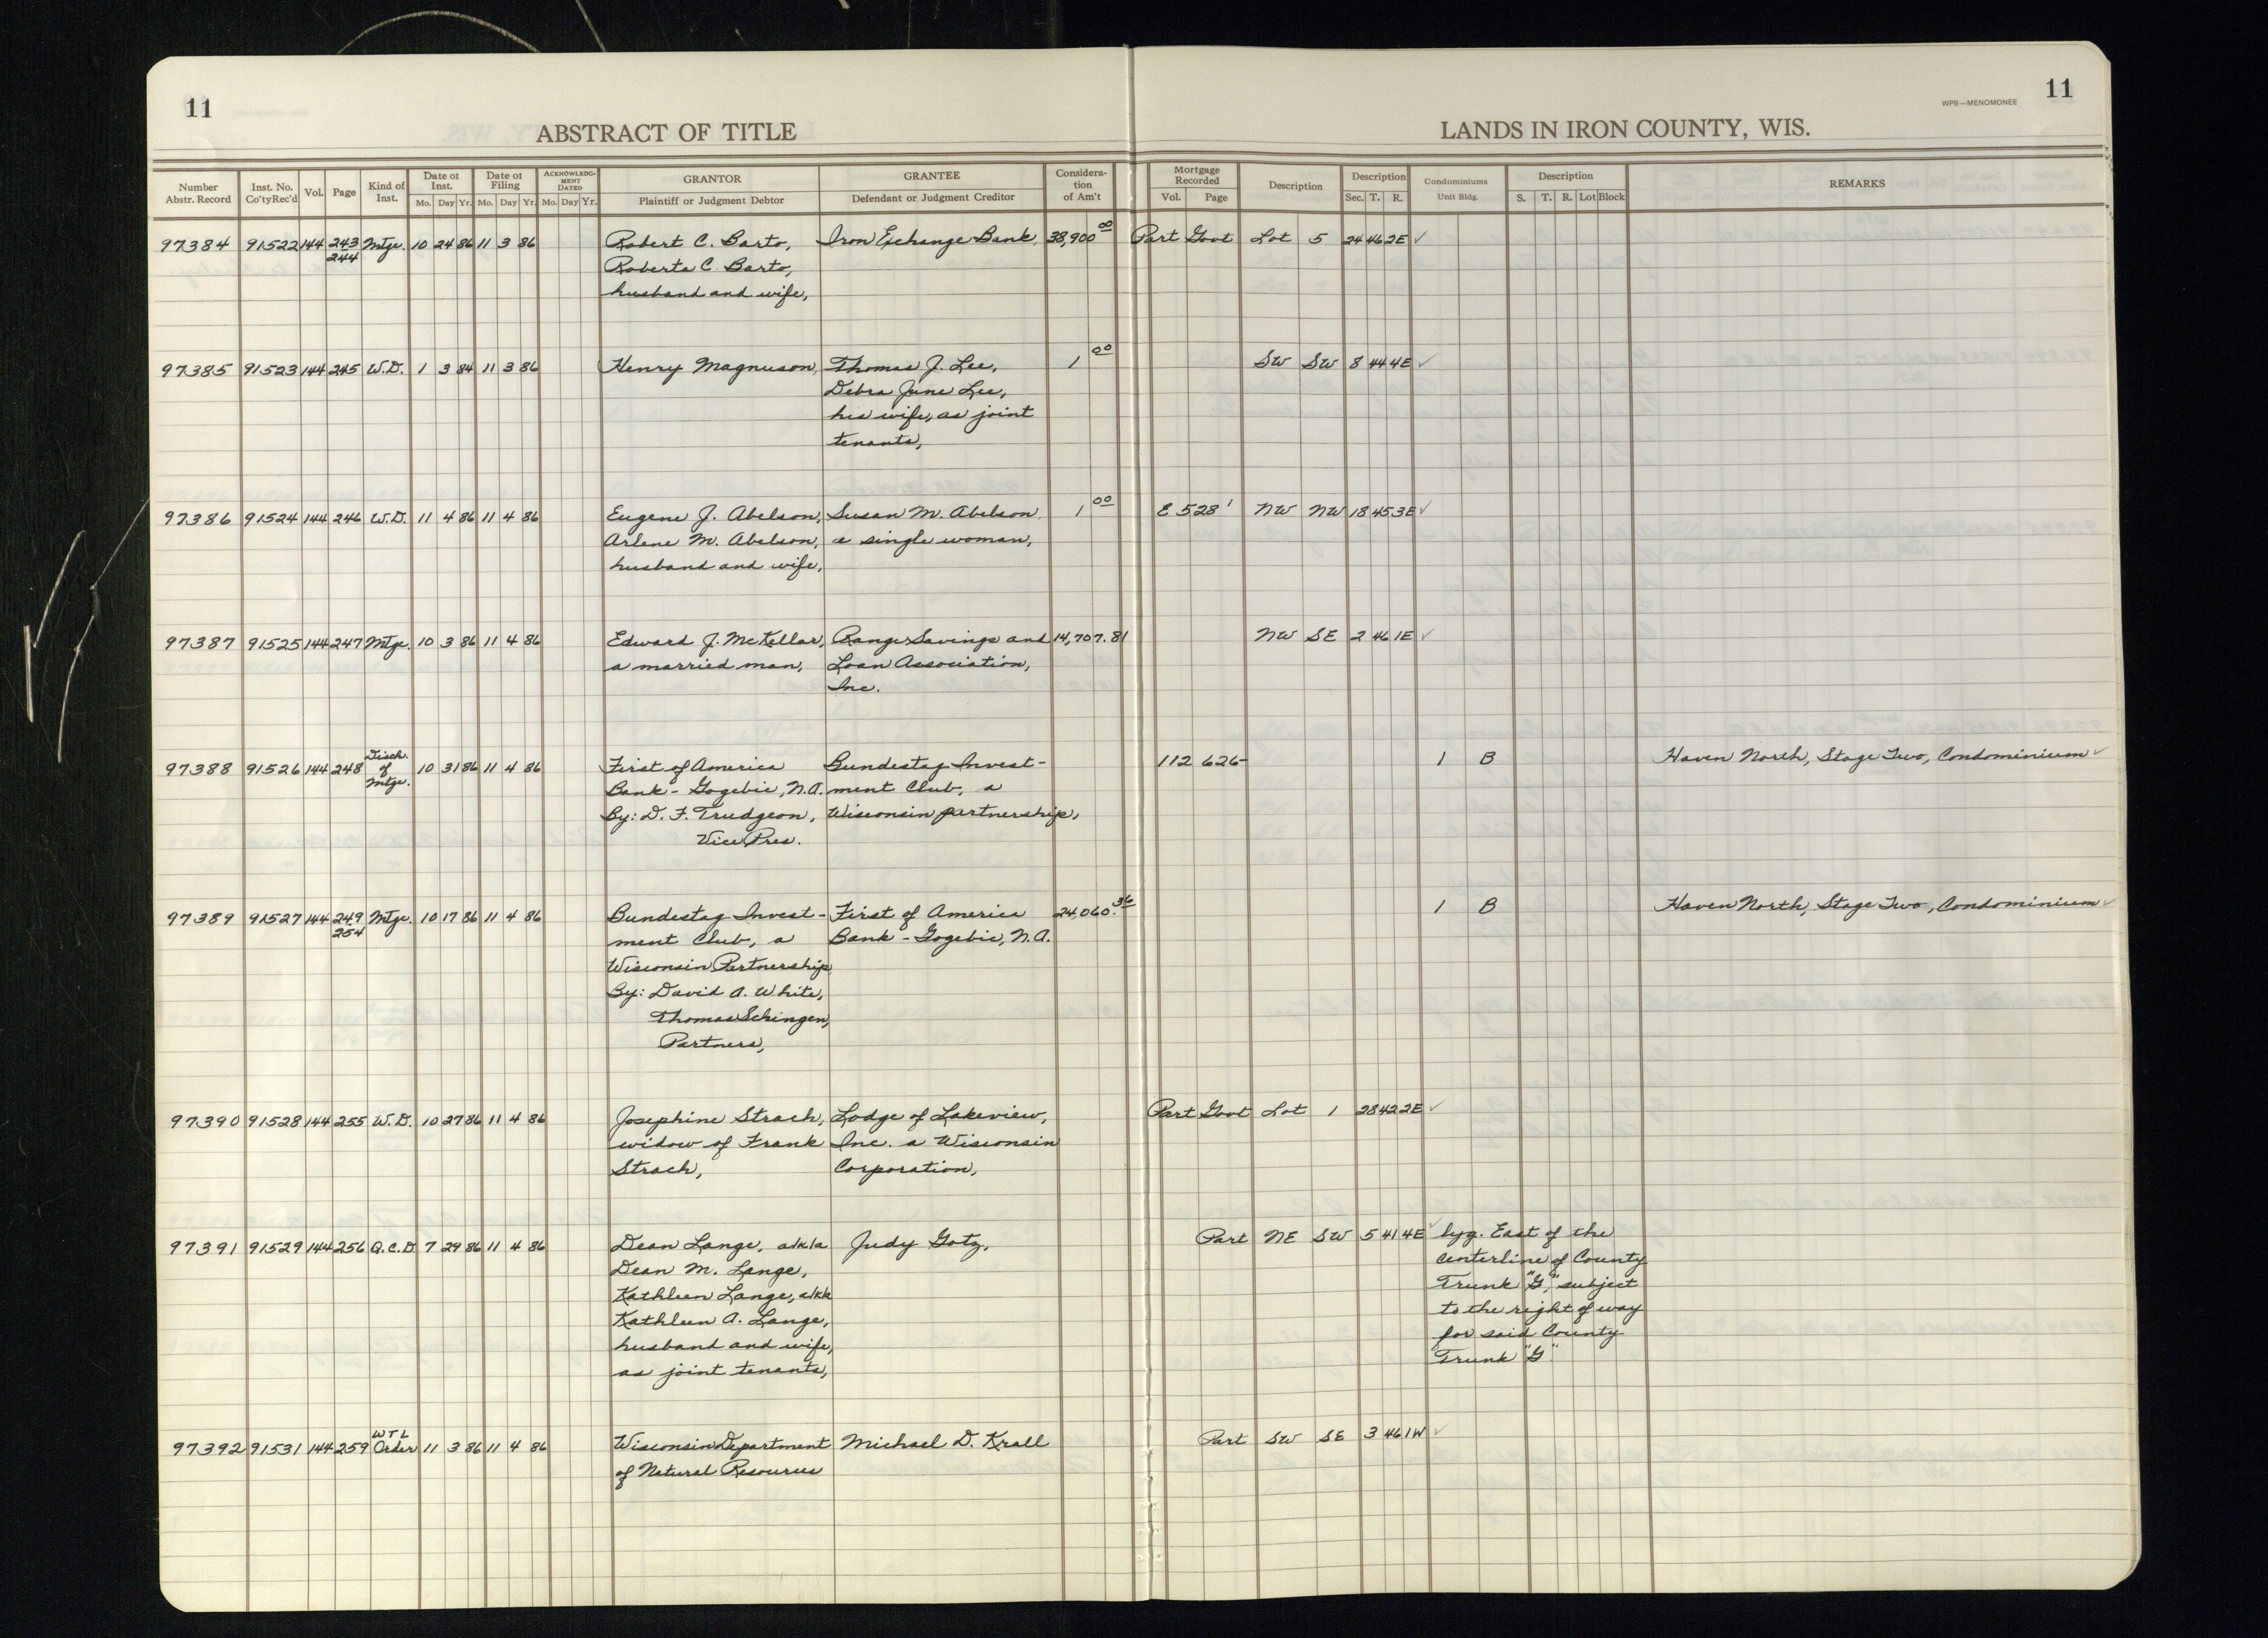 11
11
WPB—MENOMONEE
ABSTRACT OF TITLE
LANDS IN IRON COUNTY, WIS.
Number Abstr. Record | Inst. No. Co'ty Rec'd | Vol. | Page | Kind of Inst. | Date of Inst. Mo. Day Yr. | Date of Filing Mo. Day Yr. | ACKNOWLEDGMENT DATED Mo. Day Yr. | GRANTOR Plaintiff or Judgment Debtor | GRANTEE Defendant or Judgment Creditor | Consideration of Am't | Mortgage Recorded Vol. Page | Description | Description Sec. T. R. | Condominiums Unit Bldg. | Description S. T. R. Lot Block | REMARKS
97384 91522 144 243 Mtge. 10 24 86 11 3 86 Robert C. Barto, Iron Exchange Bank, 38,900 00 Part Govt Lot 5 24 46 2E ✓
244 Roberta C. Barto,
husband and wife,
97385 91523 144 245 W.D. 1 3 84 11 3 86 Henry Magnuson, Thomas J. Lee, 1 00 SW SW 8 44 4E ✓
Debra June Lee,
his wife, as joint
tenants,
97386 91524 144 246 W.D. 11 4 86 11 4 86 Eugene J. Abelson, Susan M. Abelson 1 00 E 528' NW NW 18 45 3E ✓
Arlene M. Abelson, a single woman,
husband and wife,
97387 91525 144 247 Mtge. 10 3 86 11 4 86 Edward J. McKellar, Range Savings and 14,707.81 NW SE 2 46 1E ✓
a married man, Loan Association,
Inc.
97388 91526 144 248 Disch. of Mtge. 10 31 86 11 4 86 First of America Bundestag Invest- 112 626 1 B Haven North, Stage Two, Condominium ✓
Bank - Gogebic, N.A. ment Club, a
By: D. F. Trudgeon, Wisconsin partnership,
Vice Pres.
97389 91527 144 249 Mtge. 10 17 86 11 4 86 Bundestag Invest- First of America 24,060.36 1 B Haven North, Stage Two, Condominium ✓
254 ment Club, a Bank - Gogebic, N.A.
Wisconsin Partnership
By: David A. White,
Thomas Schingen,
Partners,
97390 91528 144 255 W.D. 10 27 86 11 4 86 Josephine Strach, Lodge of Lakeview, Part Govt Lot 1 28 42 2E ✓
widow of Frank Inc. a Wisconsin
Strach, Corporation,
97391 91529 144 256 Q.C.D. 7 29 86 11 4 86 Dean Lange, a/k/a Judy Gotz, Part NE SW 5 41 4E ✓ lyg. East of the
Dean M. Lange, centerline of County
Kathleen Lange, a/k/a Trunk "G", subject
Kathleen A. Lange, to the right of way
husband and wife, for said County
as joint tenants, Trunk "G"
97392 91531 144 259 WTL Order 11 3 86 11 4 86 Wisconsin Department Michael D. Krall Part SW SE 3 46 1W ✓
of Natural Resources